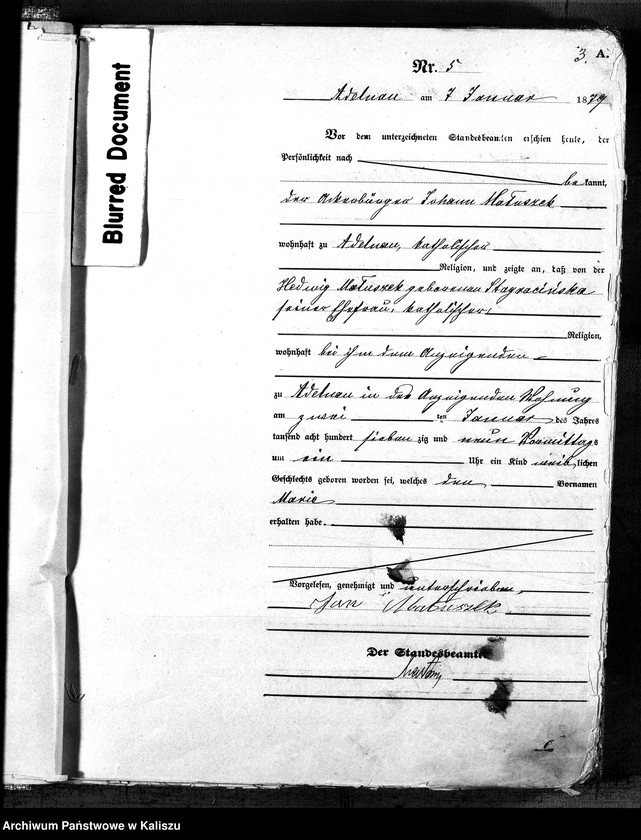 3. A.
Nr. 5
Adelnau am 7 Januar 1879
Vor dem unterzeichneten Standesbeamten erschien heute, der
Persönlichkeit nach
bekannt,
der Ackerbürger Johann Matuszek
wohnhaft zu Adelnau, katholischer
Religion, und zeigte an, daß von der
Hedwig Matuszek geborenen
seiner Ehefrau, katholischer
Religion,
wohnhaft bei ihm dem Anzeigenden
zu Adelnau in der Anzeigenden Wohnung
am zwei ten Januar des Jahres
tausend acht hundert sieben zig und neun Vormittags
um ein Uhr ein Kind weiblichen
Geschlechts geboren worden sei, welches den Vornamen
Marie
erhalten habe.
Vorgelesen, genehmigt und unterschrieben
Jan Matuszek
Der Standesbeamte
Blurred Document
Archiwum Państwowe w Kaliszu